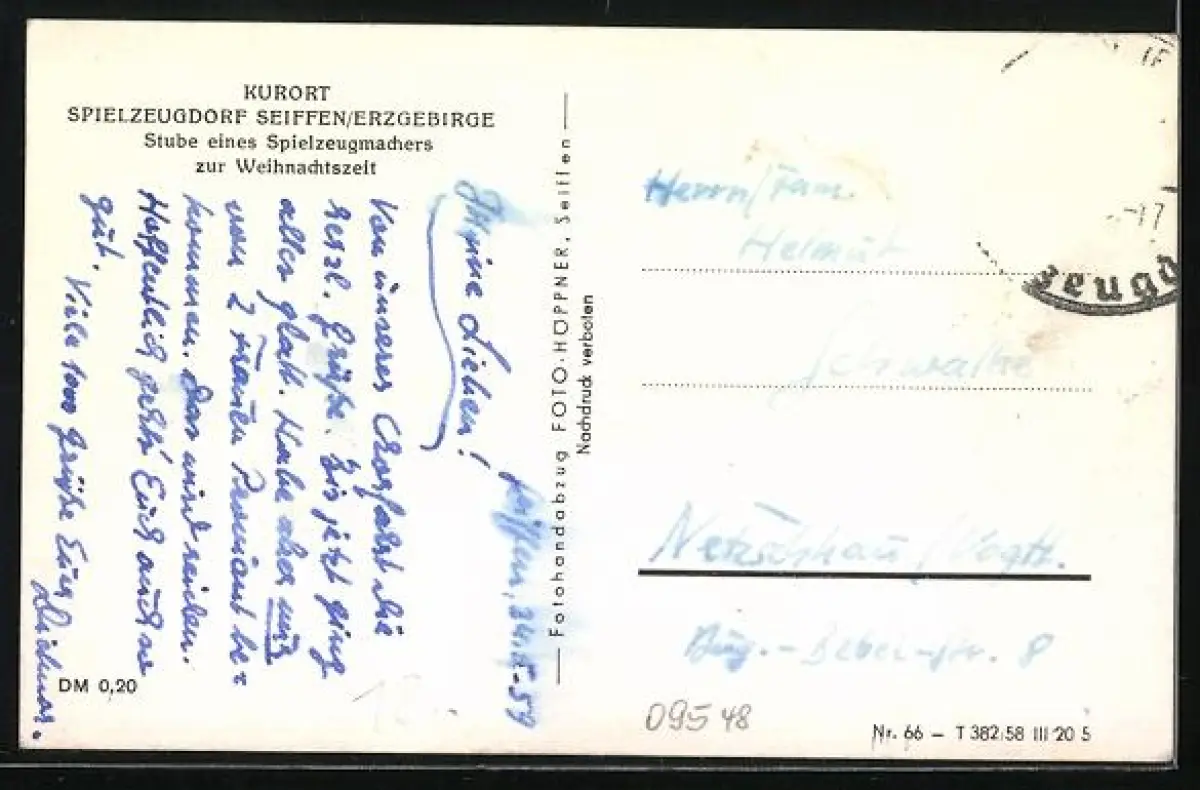 KURORT
SPIELZEUGDORF SEIFFEN/ERZGEBIRGE
Stube eines Spielzeugmachers
zur Weihnachtszeit
Seiffen, 59
Meine Lieben!
Von unserer Chorfahrt die
herzl. Grüße. Bis jetzt ging
alles glatt. Habe aber
von 2 Frauen Proviant be-
kommen. Das wird reichen.
Hoffentlich geht's Euch auch so
gut. Viele 1000 Grüße Euer
DM 0,20
Fotohandabzug FOTO-HÖPPNER, Seiffen
Nachdruck verboten
Herrn/Fam.
Helmut
Netzschkau/Vogtl.
Aug.-Bebel-Str. 8
09548
Nr. 66 – T 382/58 III 20 5
zeugd